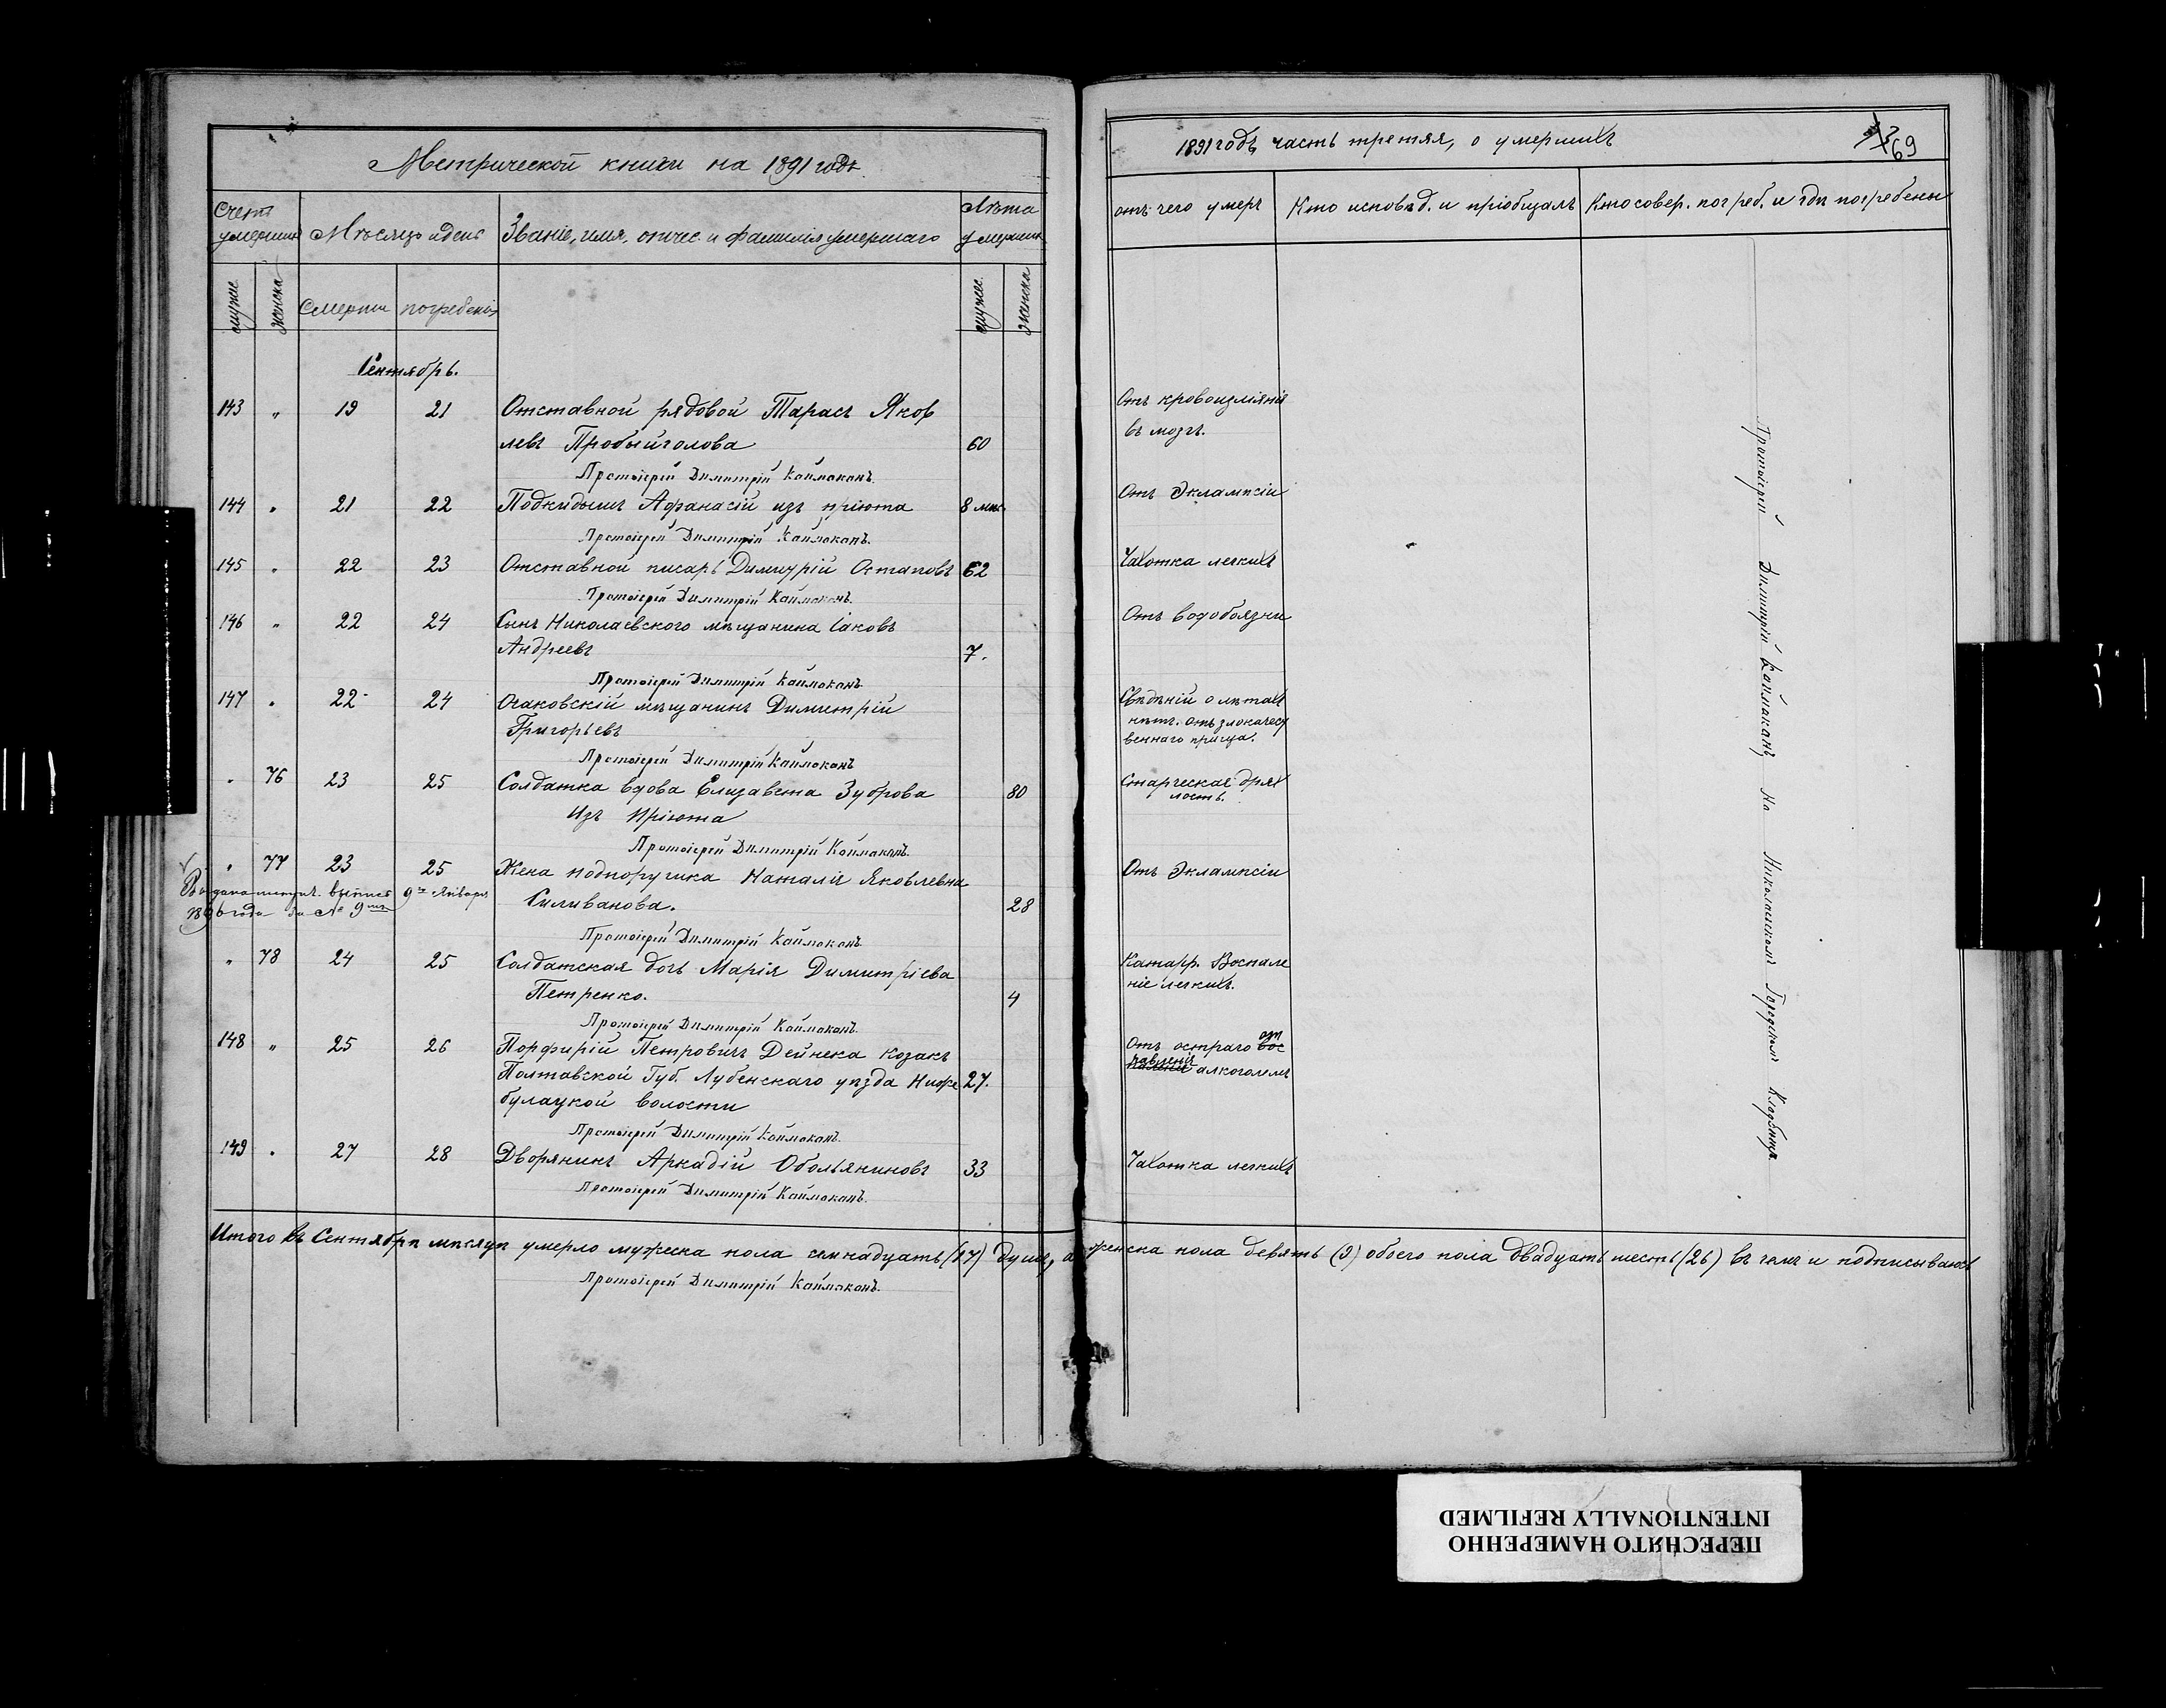 Метрической книги на 1891 годъ.
Счетъ умершихъ
Мѣсяцъ и день
Званіе, имя, отчес. и фамилія умершаго
Лѣта умерших
мужес.
женска
Смерти
погребенія
мужес.
женска
Сентябрь.
143 „ 19 21 Отставной рядовой Тарасъ Яков
левъ Пробыйголова 60
Протоіерей Димитрій Каймаканъ.
144 „ 21 22 Подкидышъ Афанасій изъ пріюта 8 мѣс.
Протоіерей Димитрій Каймаканъ.
145 „ 22 23 Отставной писарь Димитрій Остаповъ 62
Протоіерей Димитрій Каймаканъ.
146 „ 22 24 Сынъ Николаевского мѣщанина Іаковъ
Андреевъ 7.
Протоіерей Димитрій Каймаканъ.
147 „ 22 24 Очаковскій мѣщанинъ Димитрій
Григорьевъ
Протоіерей Димитрій Каймаканъ
„ 76 23 25 Солдатка вдова Елизавета Зуброва 80
Изъ Пріюта
Протоіерей Димитрій Каймаканъ.
„ 77 23 25 Жена подпоручика Наталія Яковлевна
Силиванова. 28
Выдана метрич. выпись 9го Января
1896 года за № 9мъ
Протоіерей Димитрій Каймаканъ.
„ 78 24 25 Солдатская дочь Марія Димитріева
Петренко. 4
Протоіерей Димитрій Каймаканъ.
148 „ 25 26 Порфирій Петровичъ Дейнека козакъ
Полтавской Губ. Лубенскаго уѣзда Ниже 27.
булацкой волости
Протоіерей Димитрій Каймаканъ.
149 „ 27 28 Дворянинъ Аркадій Обольяниновъ 33
Протоіерей Димитрій Каймаканъ.
Итого въ Сентябрѣ мѣсяцѣ умерло мужеска пола семнадцать (17) душъ, а женска пола девять (9) обоего пола двадцать шесть (26) въ чемъ и подписываюсь
Протоіерей Димитрій Каймаканъ.
1891 годъ, часть третяя, о умершихъ
69
отъ чего умеръ
Кто исповѣд. и пріобщалъ
Кто совер. погреб. и гдѣ погребены
Отъ кровоизліянія
въ мозгъ.
Отъ Эклампсіи
Чахотка легкихъ
Отъ водобоязни
Свѣдѣній о лѣтахъ
нѣтъ. отъ злокачест
веннаго прыща.
Старческая дрях
лость.
Отъ Эклампсіи
Катарр. Воспале
ніе легкихъ.
Отъ остраго от
равленія алкоголемъ
Чахотка легкихъ
Протоіерей Димитрій Каймаканъ, на Николаевскомъ Городскомъ Кладбищѣ.
ПЕРЕСНЯТО НАМЕРЕННО
INTENTIONALLY REFILMED